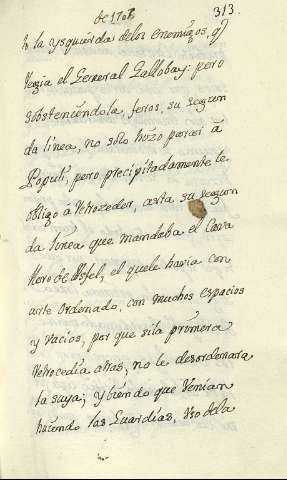 de 1707.
313.
la ysquierda delos enemigos, q̃
Regia el General Gallobay: pero
sobsteniendola, feros, su segun
da linea, no solo hizo parar â
Populi, pero precipitadamente le
obligo â retrozeder, asta su segun
da linea que mandaba el Cava
llero de Asfel, el quele havia con
arte ordenado, con muchos espacios
y vacios, por que sila primera
retrocedia atras, no le desordenara
la suya; y biendo que venian
huiendo las Guardias, uso dela